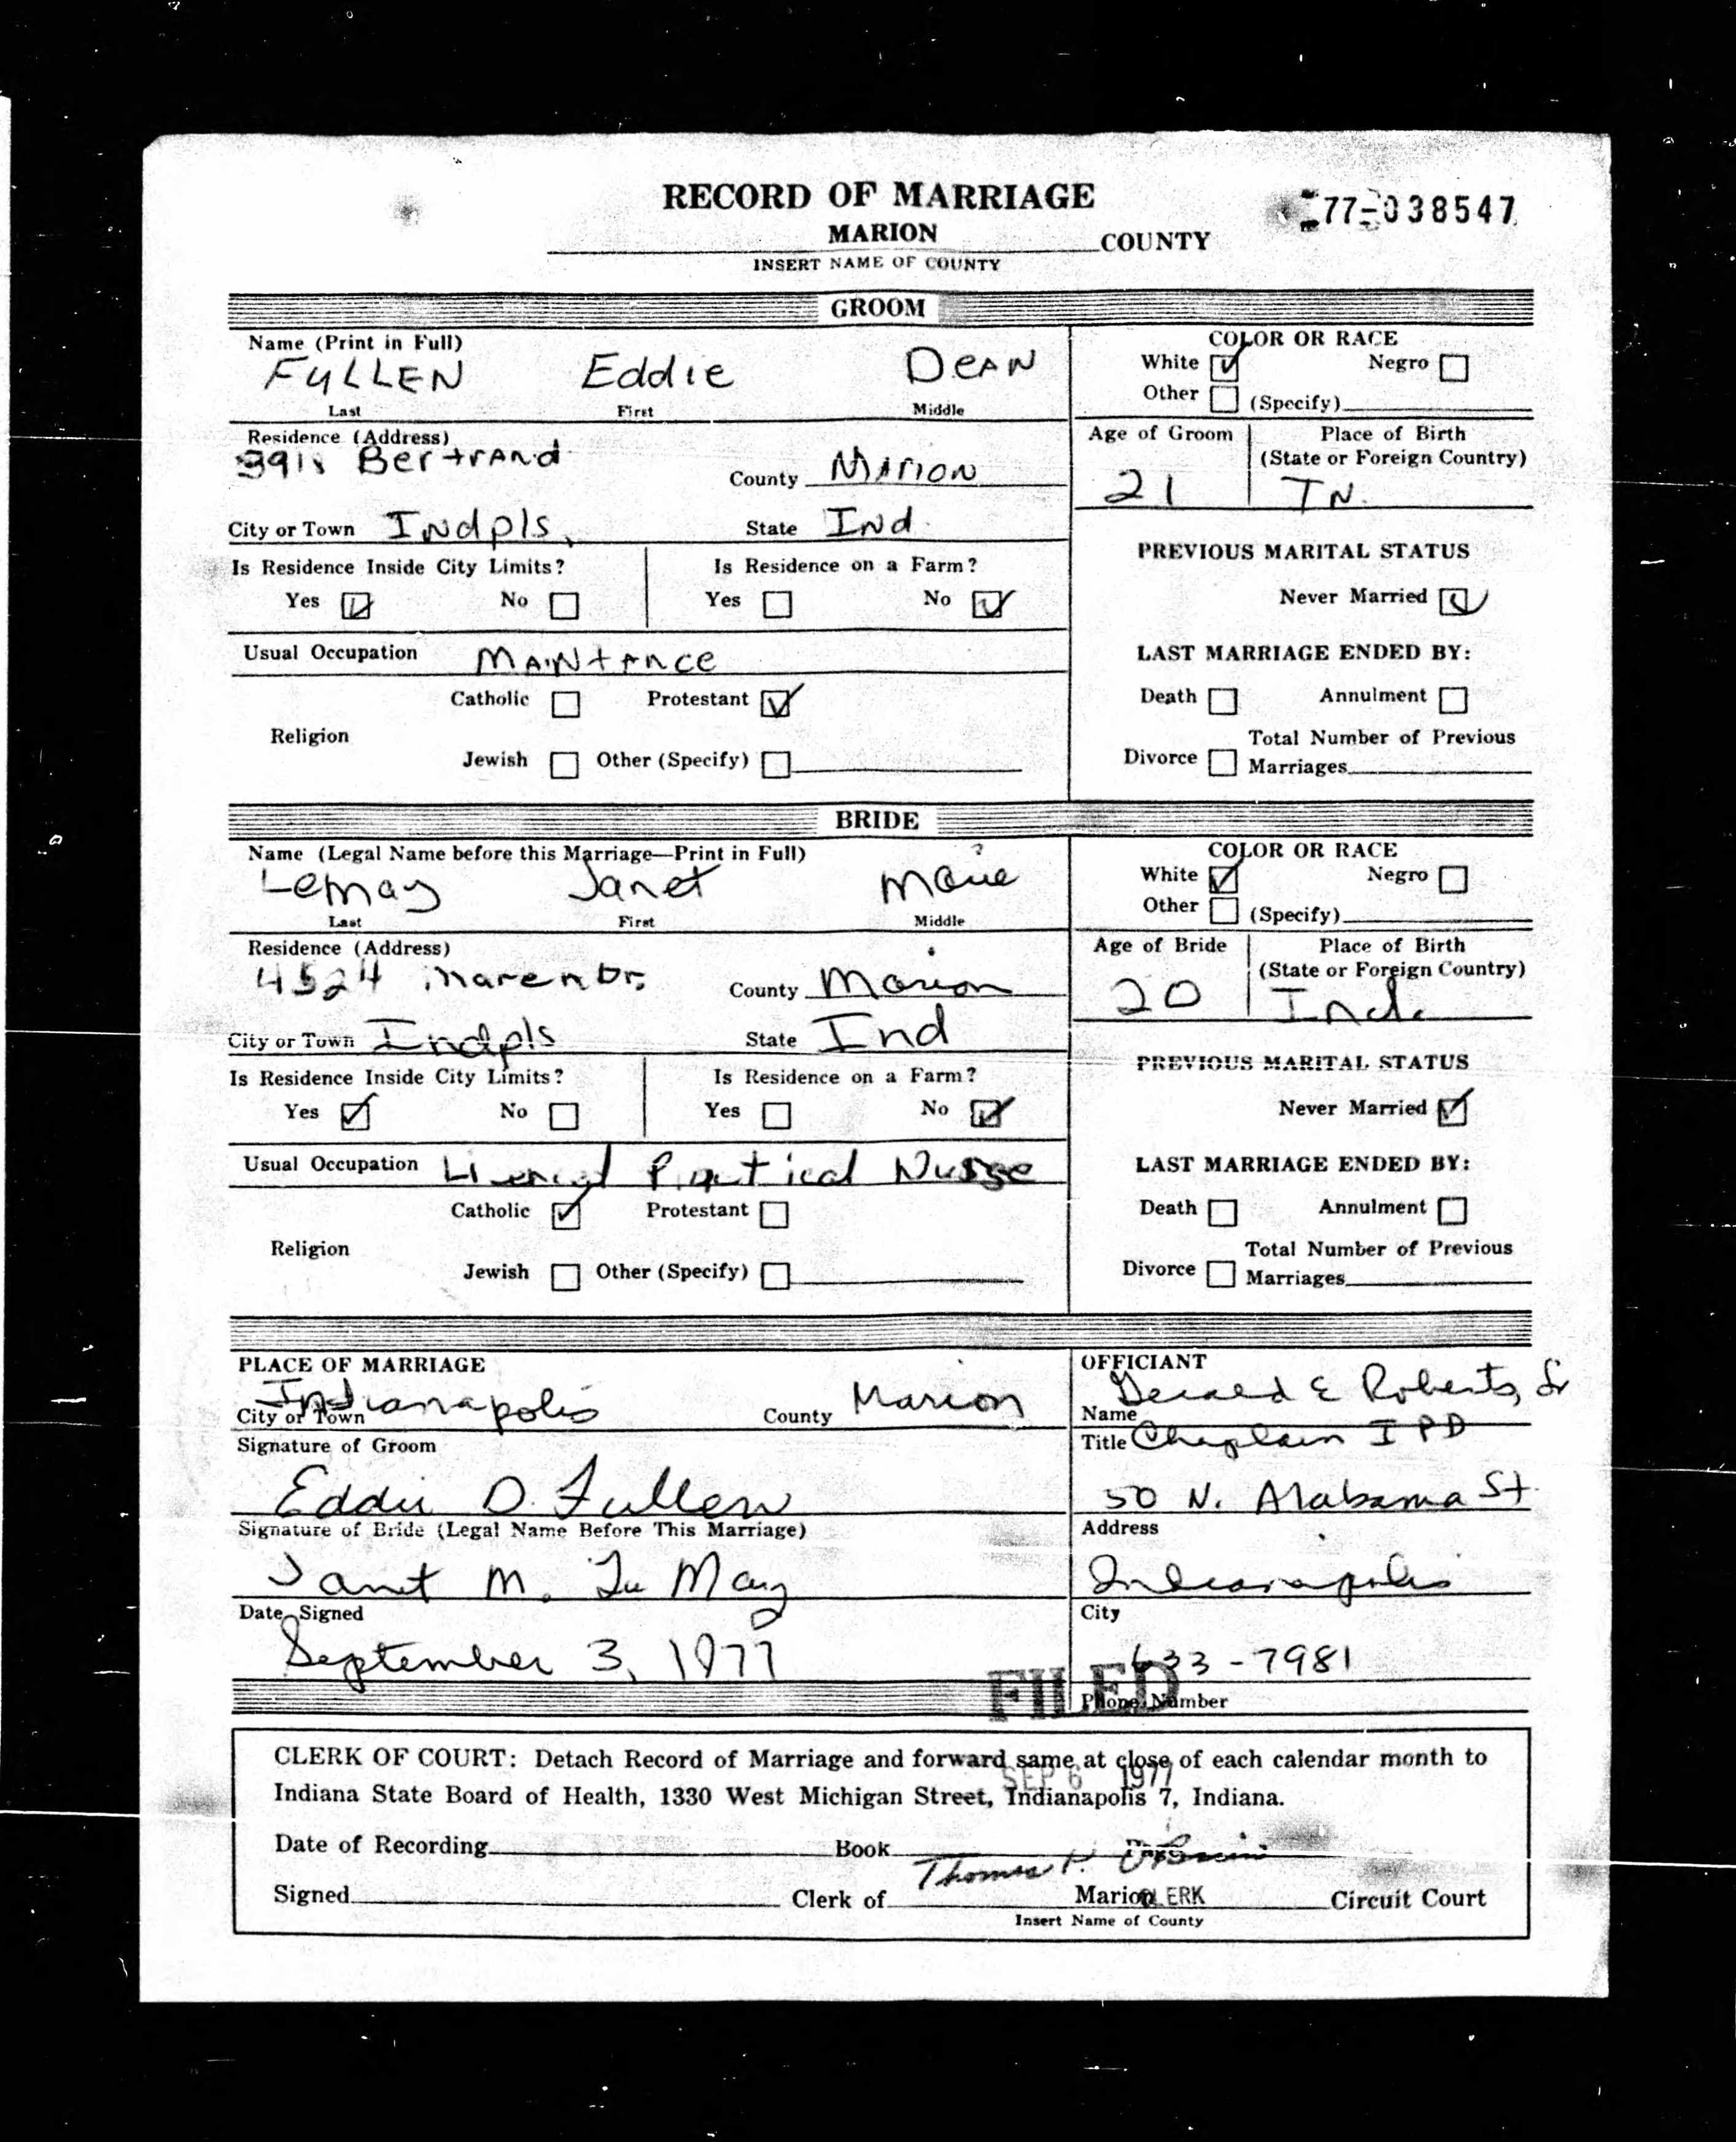 RECORD OF MARRIAGE
77-038547
MARION COUNTY
INSERT NAME OF COUNTY
GROOM
Name (Print in Full)
FULLEN Eddie DEAN
Last First Middle
COLOR OR RACE
White Negro
Other (Specify)
Residence (Address)
Bertrand
County MARION
City or Town Indpls. State Ind.
Age of Groom Place of Birth
(State or Foreign Country)
21 TN.
Is Residence Inside City Limits? Is Residence on a Farm?
Yes No Yes No
PREVIOUS MARITAL STATUS
Never Married
Usual Occupation MAiNtANce
LAST MARRIAGE ENDED BY:
Catholic Protestant
Death Annulment
Religion
Jewish Other (Specify)
Total Number of Previous
Divorce Marriages
BRIDE
Name (Legal Name before this Marriage—Print in Full)
Lemay Janet Marie
Last First Middle
COLOR OR RACE
White Negro
Other (Specify)
Residence (Address)
4524 Maren Dr.
County Marion
City or Town Indpls State Ind
Age of Bride Place of Birth
(State or Foreign Country)
20 Ind.
Is Residence Inside City Limits? Is Residence on a Farm?
Yes No Yes No
PREVIOUS MARITAL STATUS
Never Married
Usual Occupation Practical Nurse
LAST MARRIAGE ENDED BY:
Catholic Protestant
Death Annulment
Religion
Jewish Other (Specify)
Total Number of Previous
Divorce Marriages
PLACE OF MARRIAGE
Indianapolis Marion
City or Town County
OFFICIANT
Gerald E Roberts, Sr
Name
Title Chaplain IPD
Signature of Groom
Eddie D. Fullen
50 N. Alabama St.
Address
Signature of Bride (Legal Name Before This Marriage)
Janet M. Le May
Indianapolis
City
Date Signed
September 3, 1977
633-7981
Phone Number
FILED
CLERK OF COURT: Detach Record of Marriage and forward same at close of each calendar month to
SEP 6 1977
Indiana State Board of Health, 1330 West Michigan Street, Indianapolis 7, Indiana.
Date of Recording Book
Thomas P. O'Brien
Signed Clerk of Marion CLERK Circuit Court
Insert Name of County